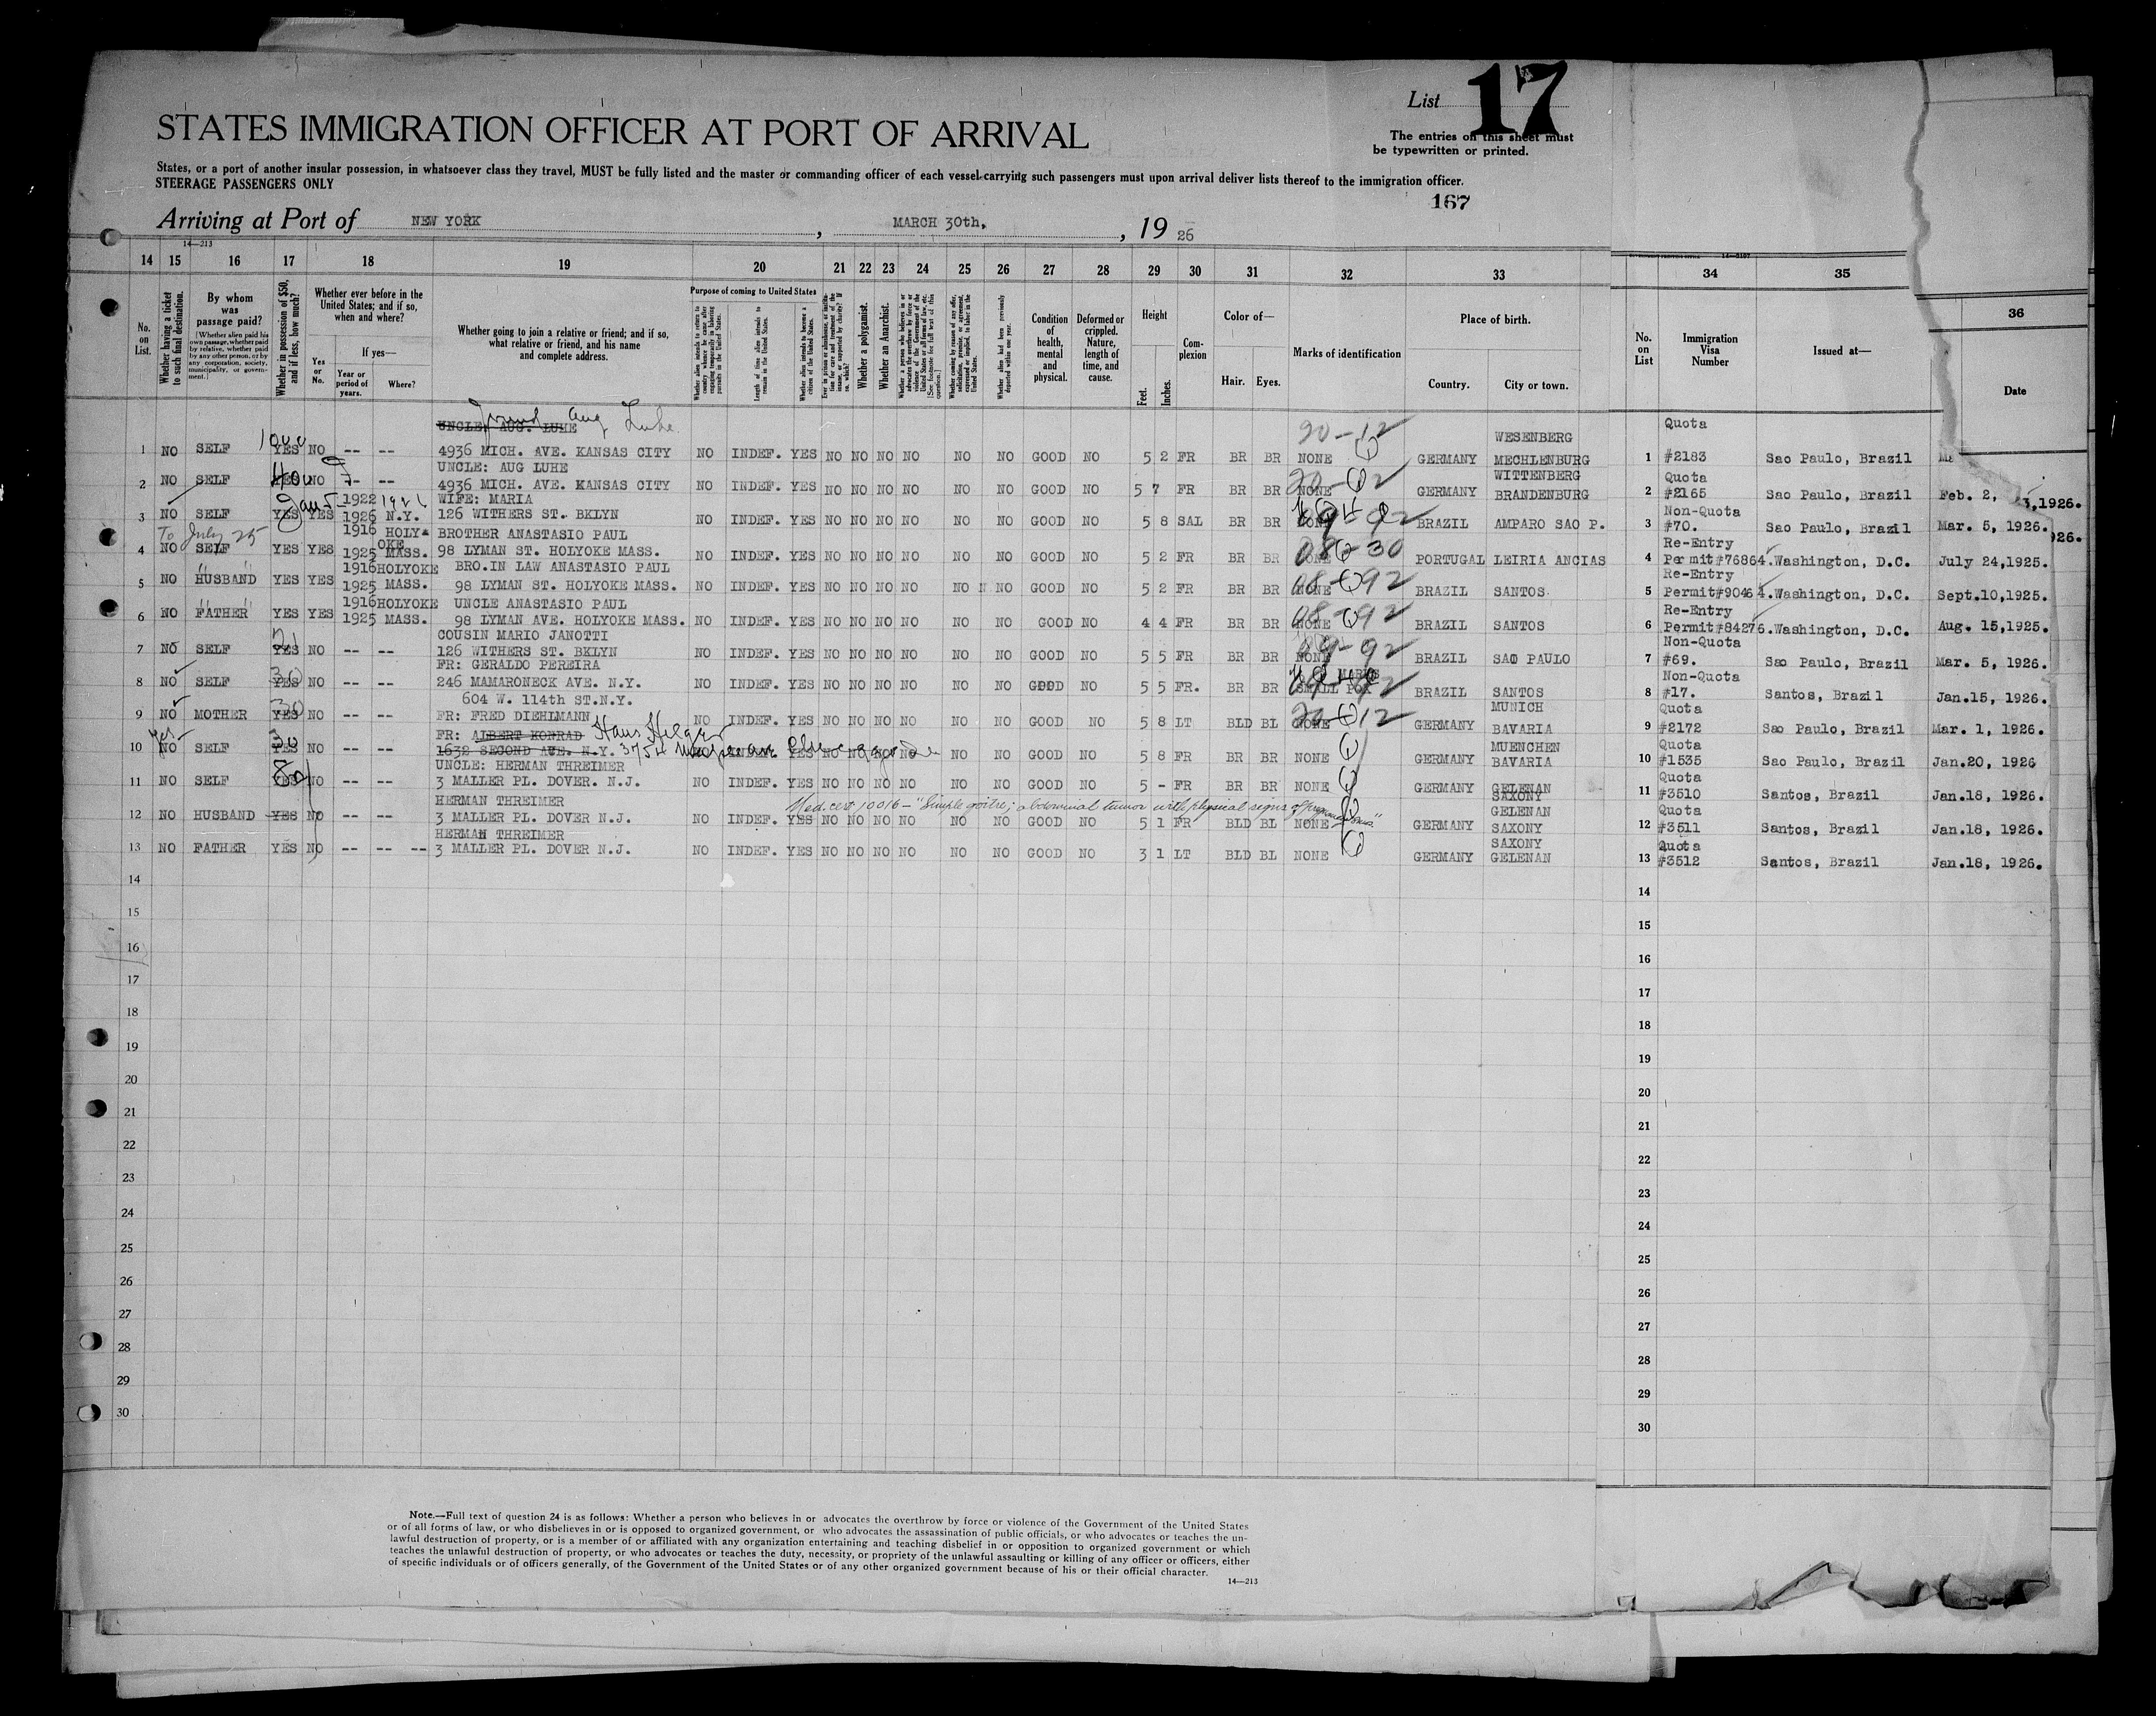 List 17
STATES IMMIGRATION OFFICER AT PORT OF ARRIVAL
The entries on this sheet must
be typewritten or printed.
States, or a port of another insular possession, in whatsoever class they travel, MUST be fully listed and the master or commanding officer of each vessel carrying such passengers must upon arrival deliver lists thereof to the immigration officer.
STEERAGE PASSENGERS ONLY
167
Arriving at Port of NEW YORK, MARCH 30th, 19 26
14—213
14 15 16 17 18 19 20 21 22 23 24 25 26 27 28 29 30 31 32 33 34 35 36
No. on List.
Whether having a ticket to such final destination.
By whom was passage paid?
[Whether alien paid his own passage, whether paid by relative, whether paid by any other person, or by any corporation, society, municipality, or government.]
Whether in possession of $50, and if less, how much?
Whether ever before in the United States; and if so, when and where?
Yes or No.
If yes—
Year or period of years.
Where?
Whether going to join a relative or friend; and if so, what relative or friend, and his name and complete address.
Purpose of coming to United States
Whether alien intends to return to country whence he came after engaging temporarily in laboring pursuits in the United States.
Length of time alien intends to remain in the United States.
Whether alien intends to become a citizen of the United States.
Whether a polygamist.
Whether an Anarchist.
Whether alien had been previously deported within one year.
Condition of health, mental and physical.
Deformed or crippled. Nature, length of time, and cause.
Height
Feet. Inches.
Complexion
Color of—
Hair. Eyes.
Marks of identification
Place of birth.
Country. City or town.
No. on List
Immigration Visa Number
Issued at—
Date
UNCLE: AUG. LUHE friend Aug Luhe
1000 20-12 WESENBERG Quota
1 NO SELF YES NO -- -- 4936 MICH. AVE. KANSAS CITY NO INDEF. YES NO NO NO NO NO NO GOOD NO 5 2 FR BR BR NONE GERMANY MECHLENBURG 1 #2183 Sao Paulo, Brazil
UNCLE: AUG LUHE WITTENBERG Quota
2 NO SELF 400 NO -- -- 4936 MICH. AVE. KANSAS CITY NO INDEF. YES NO NO NO NO NO NO GOOD NO 5 7 FR BR BR NONE GERMANY BRANDENBURG 2 #2165 Sao Paulo, Brazil Feb. 2,
3,1926.
1922 WIFE: MARIA Non-Quota
3 NO SELF YES YES 1926 N.Y. 126 WITHERS ST. BKLYN NO INDEF. YES NO NO NO NO NO NO GOOD NO 5 8 SAL BR BR BRAZIL AMPARO SAO P. 3 #70. Sao Paulo, Brazil Mar. 5, 1926.
26.
To July 25 1916 HOLYOKE BROTHER ANASTASIO PAUL 08-30 Re-Entry
4 NO SELF YES YES 1925 MASS. 98 LYMAN ST. HOLYOKE MASS. NO INDEF. YES NO NO NO NO NO NO GOOD NO 5 2 FR BR BR NONE PORTUGAL LEIRIA ANCIAS 4 Permit#76864. Washington, D.C. July 24,1925.
1916 HOLYOKE BRO.IN LAW ANASTASIO PAUL 08-92 Re-Entry
5 NO HUSBAND YES YES 1925 MASS. 98 LYMAN ST. HOLYOKE MASS. NO INDEF. YES NO NO NO NO NO NO GOOD NO 5 2 FR BR BR NONE BRAZIL SANTOS 5 Permit#90464. Washington, D.C. Sept.10,1925.
1916 HOLYOKE UNCLE ANASTASIO PAUL 08-92 Re-Entry
6 NO FATHER YES YES 1925 MASS. 98 LYMAN AVE. HOLYOKE MASS. NO INDEF. YES NO NO NO NO NO NO GOOD NO 4 4 FR BR BR NONE BRAZIL SANTOS 6 Permit#84276. Washington, D.C. Aug. 15,1925.
COUSIN MARIO JANOTTI Non-Quota
7 NO SELF YES NO -- -- 126 WITHERS ST. BKLYN NO INDEF. YES NO NO NO NO NO NO GOOD NO 5 5 FR BR BR NONE BRAZIL SAO PAULO 7 #69. Sao Paulo, Brazil Mar. 5, 1926.
FR: GERALDO PEREIRA MARKS Non-Quota
8 NO SELF YES 30 NO -- -- 246 MAMARONECK AVE. N.Y. NO INDEF. YES NO NO NO NO NO NO GOOD NO 5 5 FR. BR BR SMALL POX BRAZIL SANTOS 8 #17. Santos, Brazil Jan.15, 1926.
604 W. 114th ST.N.Y. MUNICH Quota
9 NO MOTHER YES NO -- -- FR: FRED DIEHLMANN NO INDEF. YES NO NO NO NO NO NO GOOD NO 5 8 LT BLD BL NONE GERMANY BAVARIA 9 #2172 Sao Paulo, Brazil Mar. 1, 1926.
yes FR: ALBERT KONRAD Hans Hilger MUENCHEN Quota
10 NO SELF YES NO -- -- 1632 SECOND AVE. N.Y. YES NO NO NO NO NO NO GOOD NO 5 8 FR BR BR NONE GERMANY BAVARIA 10 #1535 Sao Paulo, Brazil Jan.20, 1926
UNCLE: HERMAN THREIMER Quota
11 NO SELF YES NO -- -- 3 MALLER PL. DOVER. N.J. NO INDEF. YES NO NO NO NO NO NO GOOD NO 5 - FR BR BR NONE GERMANY GELENAN SAXONY 11 #3510 Santos, Brazil Jan.18, 1926.
HERMAN THREIMER Med. cert 10016 - "Simple goitre; abdominal tumor with physical signs of GELENAN Quota
12 NO HUSBAND YES NO -- -- 3 MALLER PL. DOVER N.J. NO INDEF. YES NO NO NO NO NO NO GOOD NO 5 1 FR BLD BL NONE GERMANY SAXONY 12 #3511 Santos, Brazil Jan.18, 1926.
HERMAN THREIMER SAXONY Quota
13 NO FATHER YES NO -- -- -- 3 MALLER PL. DOVER N.J. NO INDEF. YES NO NO NO NO NO NO GOOD NO 3 1 LT BLD BL NONE GERMANY GELENAN 13 #3512 Santos, Brazil Jan.18, 1926.
14 14
15 15
16 16
17 17
18 18
19 19
20 20
21 21
22 22
23 23
24 24
25 25
26 26
27 27
28 28
29 29
30 30
Note.—Full text of question 24 is as follows: Whether a person who believes in or advocates the overthrow by force or violence of the Government of the United States
or of all forms of law, or who disbelieves in or is opposed to organized government, or who advocates the assassination of public officials, or who advocates or teaches the un-
lawful destruction of property, or is a member of or affiliated with any organization entertaining and teaching disbelief in or opposition to organized government or which
teaches the unlawful destruction of property, or who advocates or teaches the duty, necessity, or propriety of the unlawful assaulting or killing of any officer or officers, either
of specific individuals or of officers generally, of the Government of the United States or of any other organized government because of his or their official character.
14—213